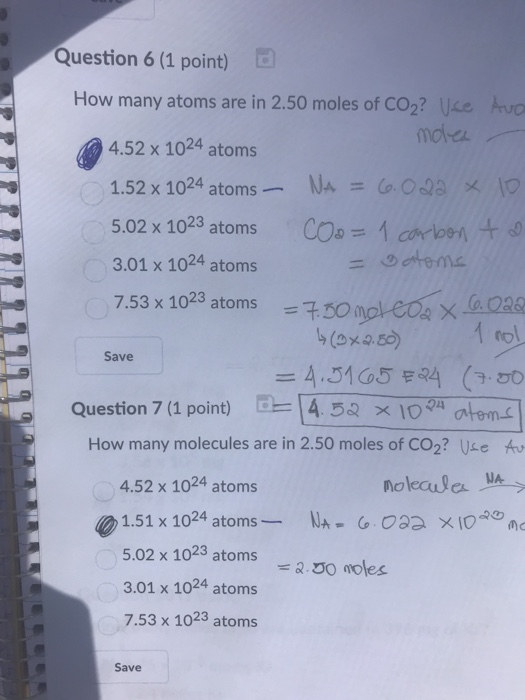 Save
Question 6 (1 point)
How many atoms are in 2.50 moles of CO2? Use Avo
moles
4.52 x 10^24 atoms
1.52 x 10^24 atoms — NA = 6.022 x 10
5.02 x 10^23 atoms CO2 = 1 carbon + 2
3.01 x 10^24 atoms = 3 atoms
7.53 x 10^23 atoms = 7.50 mol CO2 x 6.022
↳ (3x2.50) 1 mol
Save
= 4.5165 E24 (7.50
Question 7 (1 point) = 4.52 x 10^24 atoms
How many molecules are in 2.50 moles of CO2? Use Av
4.52 x 10^24 atoms molecules NA →
1.51 x 10^24 atoms — NA = 6.022 x 10^23 mo
5.02 x 10^23 atoms = 2.50 moles
3.01 x 10^24 atoms
7.53 x 10^23 atoms
Save